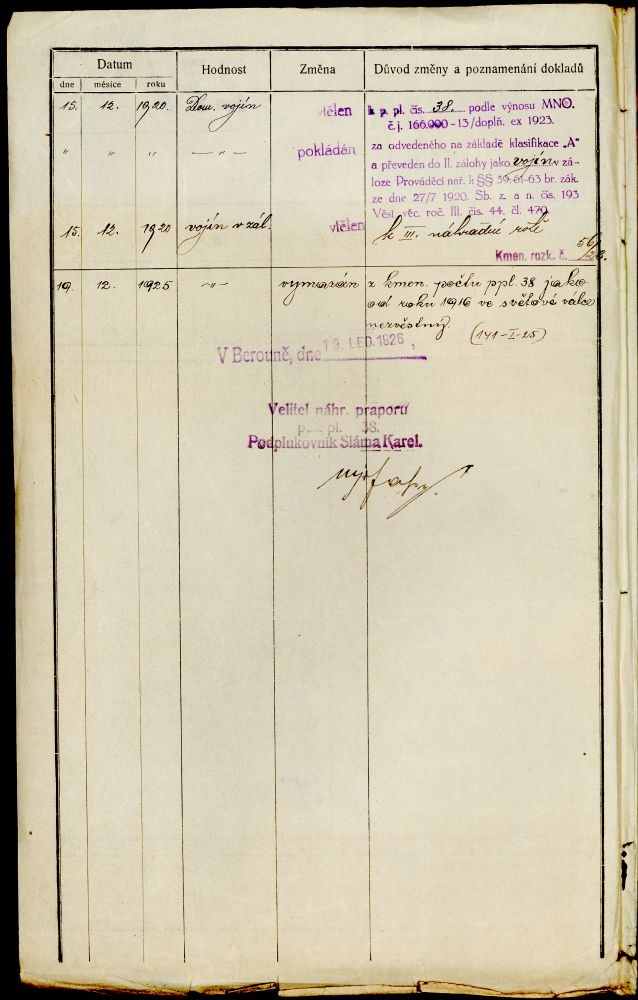 Datum Hodnost Změna Důvod změny a poznamenání dokladů
dne měsíce roku
15. 12. 1920. Dom. vojín vtělen k p. pl. čís. 38. podle výnosu MNO.
č. j. 166.000-13/doplň. ex 1923.
" " " — " — pokládán za odvedeného na základě klasifikace „A"
a převeden do II. zálohy jako vojín v zá-
loze Prováděcí nař. k §§ 59.61-63 br. zák.
ze dne 27/7 1920. Sb. z. a n. čís. 193
Věst. věc. roč. III. čís. 44, čl. 470
15. 12. 1920 vojín v zál. vtělen k III. náhradní rotě
Kmen. rozk. č. 56/23.
19. 12. 1925 —"— vymazán z kmen. počtu ppl. 38 jako
od roku 1916 ve světové válce
nezvěstný. (141-I-25)
V Berouně, dne 19. LED. 1926,
Velitel náhr. praporu
pěš. pl. 38.
Podplukovník Sláma Karel.